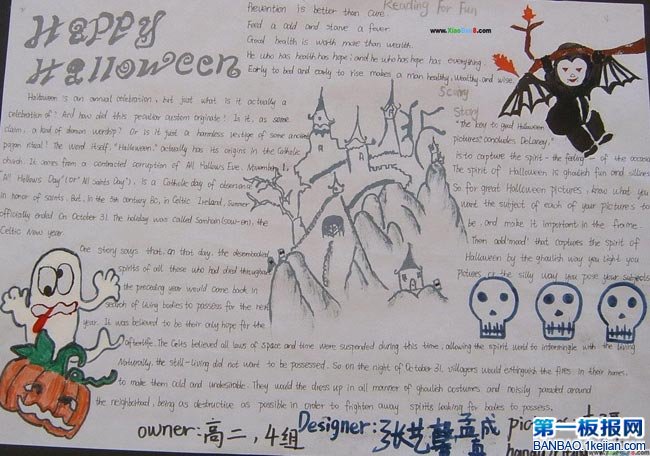 Happy
Halloween
Prevention is better than cure.
Feed a cold and starve a fever.
Good health is worth more than wealth.
He who has health has hope; and he who has hope has everything.
Early to bed and early to rise makes a man healthy, wealthy and wise.
Reading for Fun
www.XiaoBao8.com
Scary
Story
Halloween is an annual celebration, but just what is it actually a
celebration of? And how did this peculiar custom originate? Is it, as some
claim, a kind of demon worship? Or is it just a harmless vestige of some ancient
pagan ritual? The word itself, "Halloween," actually has its origins in the Catholic
church. It comes from a contracted corruption of All Hallows Eve. November 1,
"All Hallows Day" (or "All Saints Day"), is a Catholic day of observance
in honor of saints. But, in the 5th century BC, in Celtic Ireland, summer
officially ended on October 31. The holiday was called Samhain (sow-en), the
Celtic New year.
One story says that, on that day, the disembodied
spirits of all those who had died throughout
the preceding year would come back in
search of living bodies to possess for the next
year. It was believed to be their only hope for the
afterlife. The Celts believed all laws of space and time were suspended during this time, allowing the spirit world to intermingle with the living
Naturally, the still-living did not want to be possessed. So on the night of October 31, villagers would extinguish the fires in their homes,
to make them cold and undesirable. They would the dress up in all manner of ghoulish costumes and noisily paraded around
the neighborhood, being as destructive as possible in order to frighten away spirits looking for bodies to possess.
"The key to good Halloween
pictures," concludes Delaney,
"is to capture the spirit - the feeling - of the occasion
The spirit of Halloween is ghoulish fun and silliness
So for great Halloween pictures, know what you
want the subject of each of your pictures to
be, and make it important in the frame.
Then add 'mood' that captures the spirit of
Halloween by the ghoulish way you light you
pictures, or the silly way you pose your subjects
owner:高二,4组
Designer:张艺馨 孟
第一板报网
BANBAO.1kejian.com